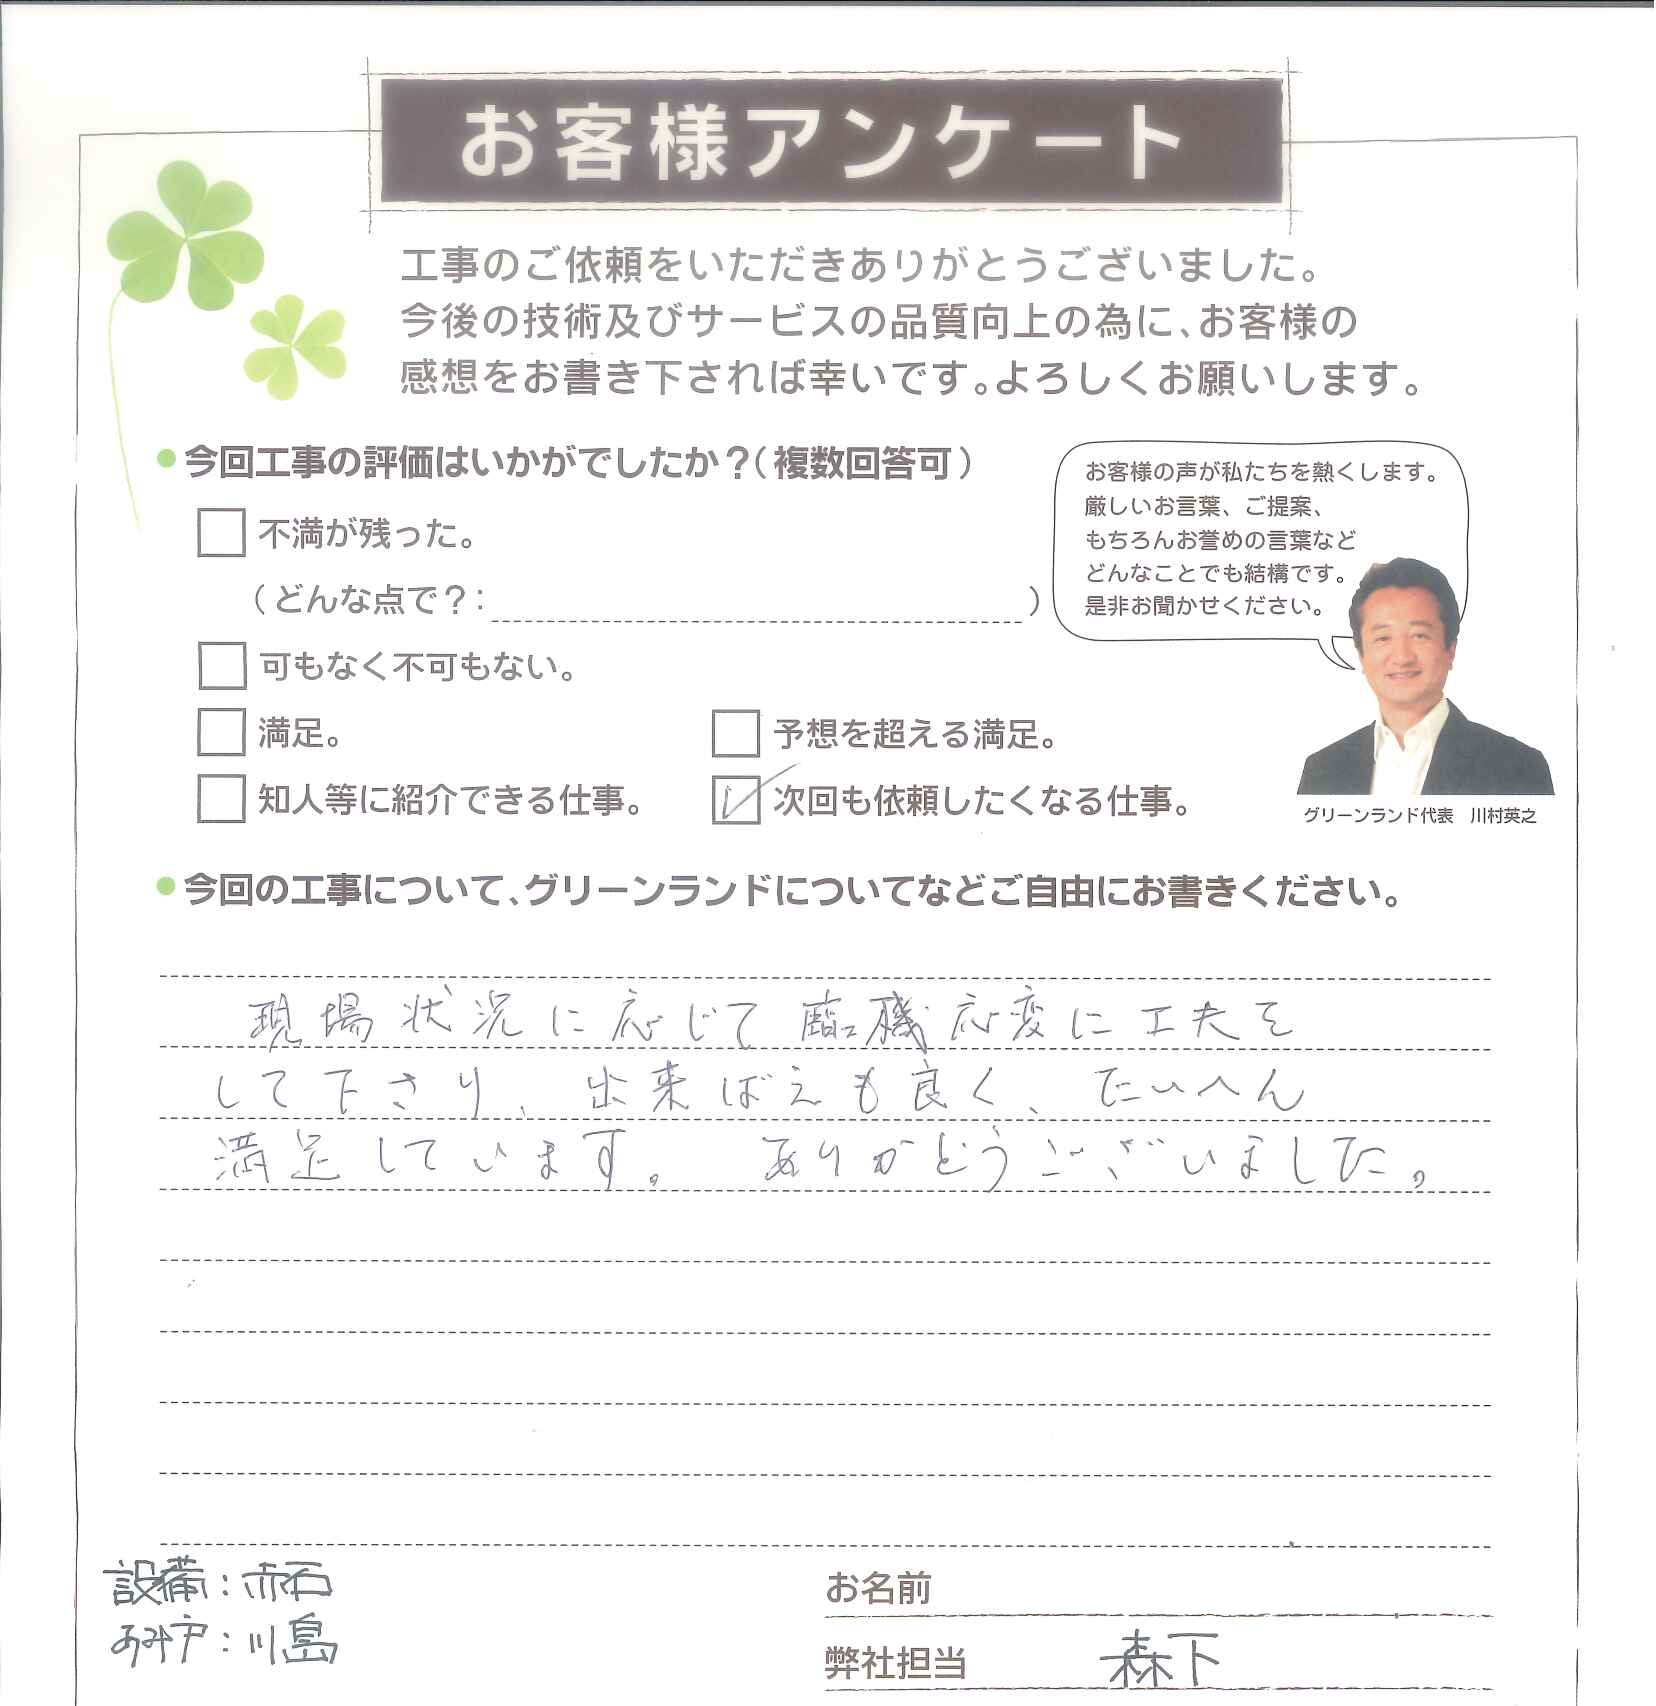 お客様アンケート
工事のご依頼をいただきありがとうございました。
今後の技術及びサービスの品質向上の為に、お客様の
感想をお書き下されば幸いです。よろしくお願いします。
●今回工事の評価はいかがでしたか？（複数回答可）
不満が残った。
（どんな点で？：　）
可もなく不可もない。
満足。
予想を超える満足。
知人等に紹介できる仕事。
次回も依頼したくなる仕事。
お客様の声が私たちを熱くします。
厳しいお言葉、ご提案、
もちろんお誉めの言葉など
どんなことでも結構です。
是非お聞かせください。
グリーンランド代表　川村英之
●今回の工事について、グリーンランドについてなどご自由にお書きください。
現場状況に応じて臨機応変に工夫を
して下さり、出来ばえも良く、たいへん
満足しています。ありがどうございました。
設備：赤石
あみ戸：川島
お名前
弊社担当　森下